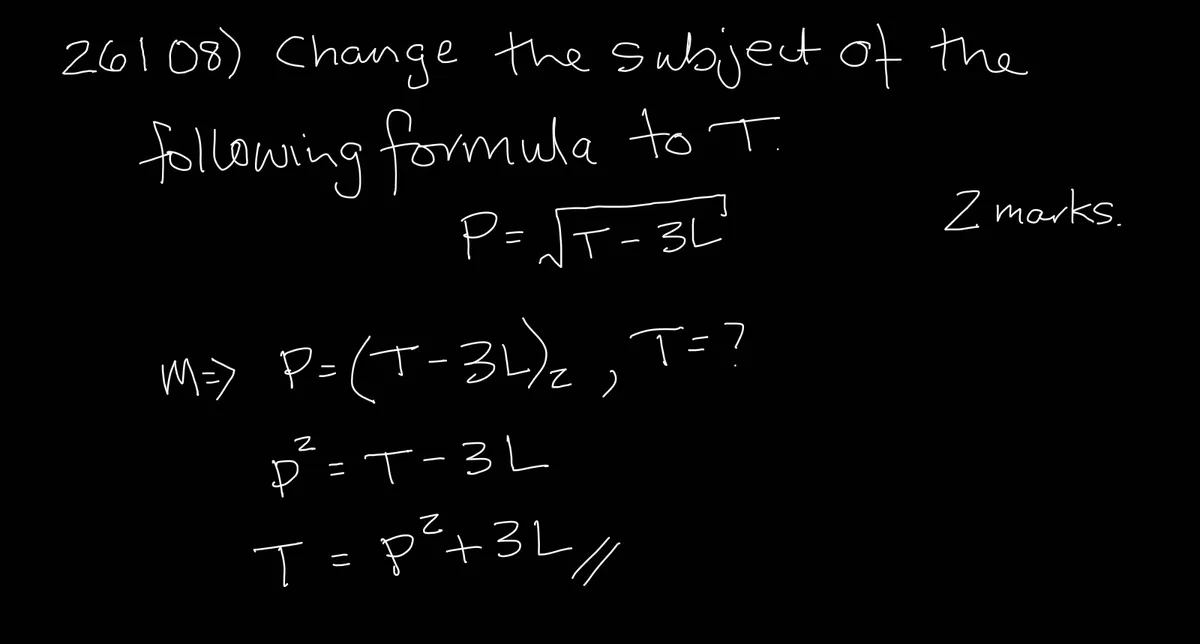 26108) Change the subject of the
following formula to T.
P=√T-3L
2 marks.
M=> P=(T-3L)₂, T=?
P²=T-3L
T = P²+3L//